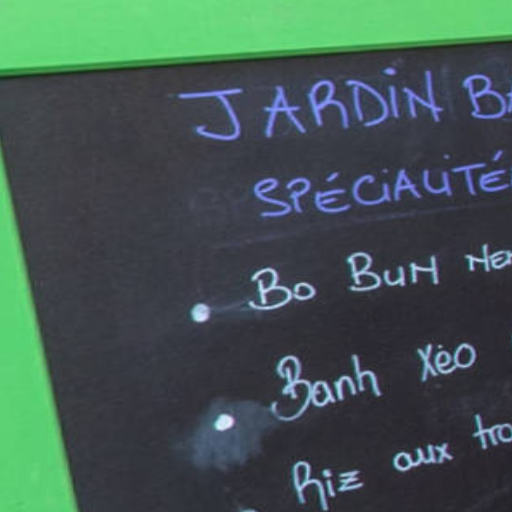 JARDIN BA
SPÉCIALITÉ
BO BUN Ne
Banh Xèo
Riz aux tro